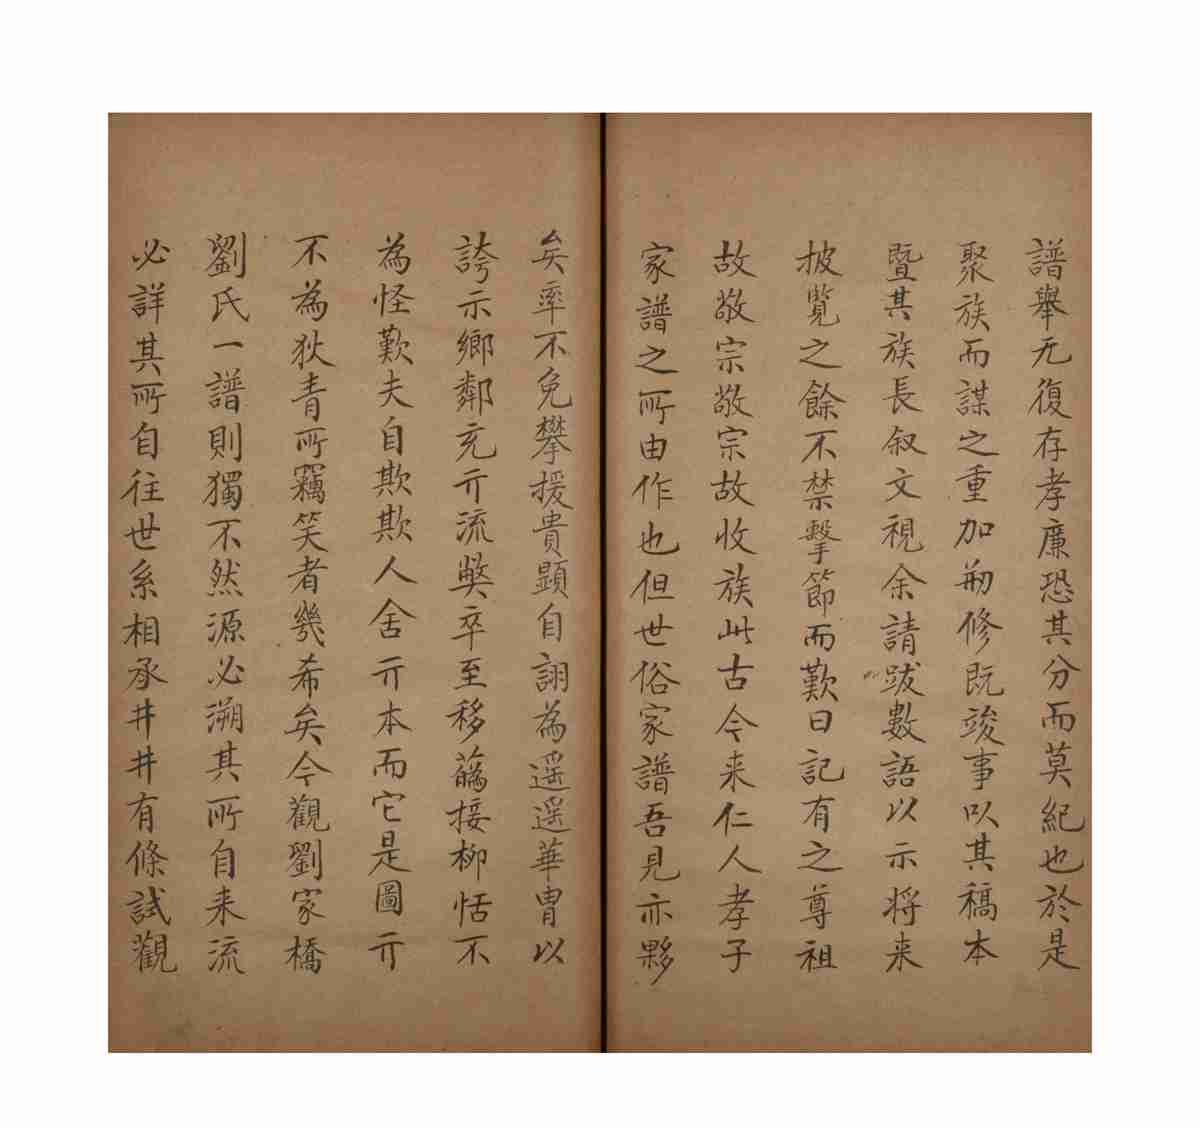 譜舉无復存孝廉恐其分而莫紀也於是
聚族而謀之重加刱修既竣事以其稿本
暨其族長叙文視余請跋數語以示将来
披覧之餘不禁擊節而歎曰記有之尊祖
故敬宗敬宗故收族此古今来仁人孝子
家譜之所由作也但世俗家譜吾見亦夥
矣率不免攀援貴顕自詡為遥遥華胄以
誇示鄉鄰充亓流獘卒至移蕌接柳恬不
為怪歎夫自欺欺人舍亓本而它是圖亓
不為狄青所竊笑者幾希矣今觀劉家橋
劉氏一譜則獨不然源必溯其所自来流
必詳其所自往世系相承井井有條試觀